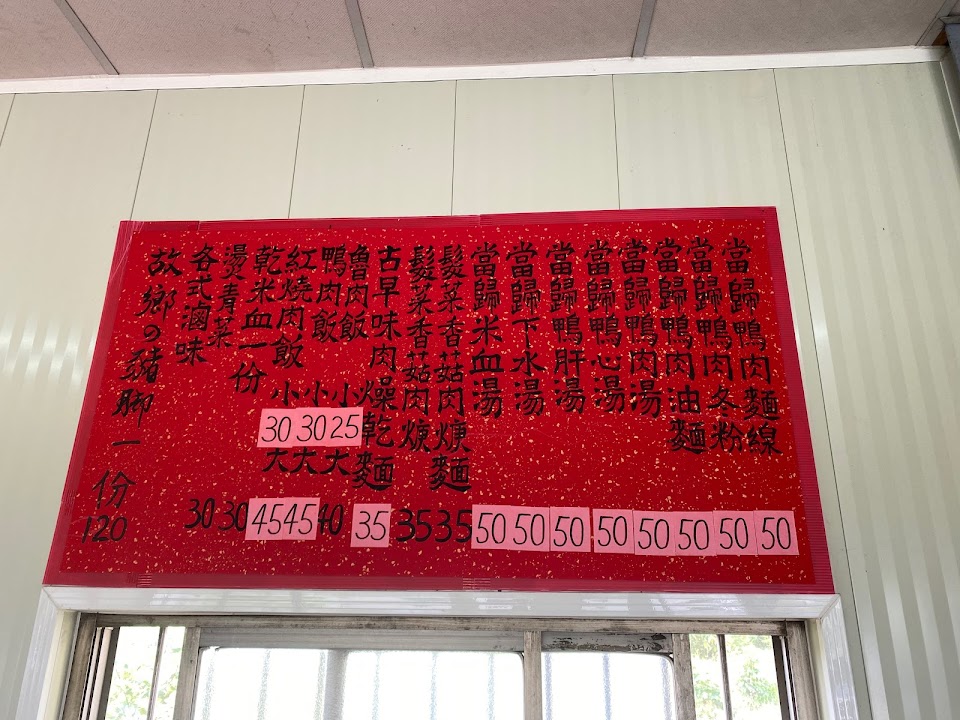 當歸鴨肉麵線 50
當歸鴨肉冬粉 50
當歸鴨肉油麵 50
當歸鴨肉湯 50
當歸鴨心湯 50
當歸鴨肝湯 50
當歸下水湯 50
當歸米血湯 50
髮菜香菇肉焿麵 35
髮菜香菇肉焿 35
古早味肉燥乾麵 35
魯肉飯 小 25 大 40
鴨肉飯 小 30 大 45
紅燒肉飯 小 30 大 45
乾米血一份 30
燙青菜 30
各式滷味
故鄉の豬腳一份 120